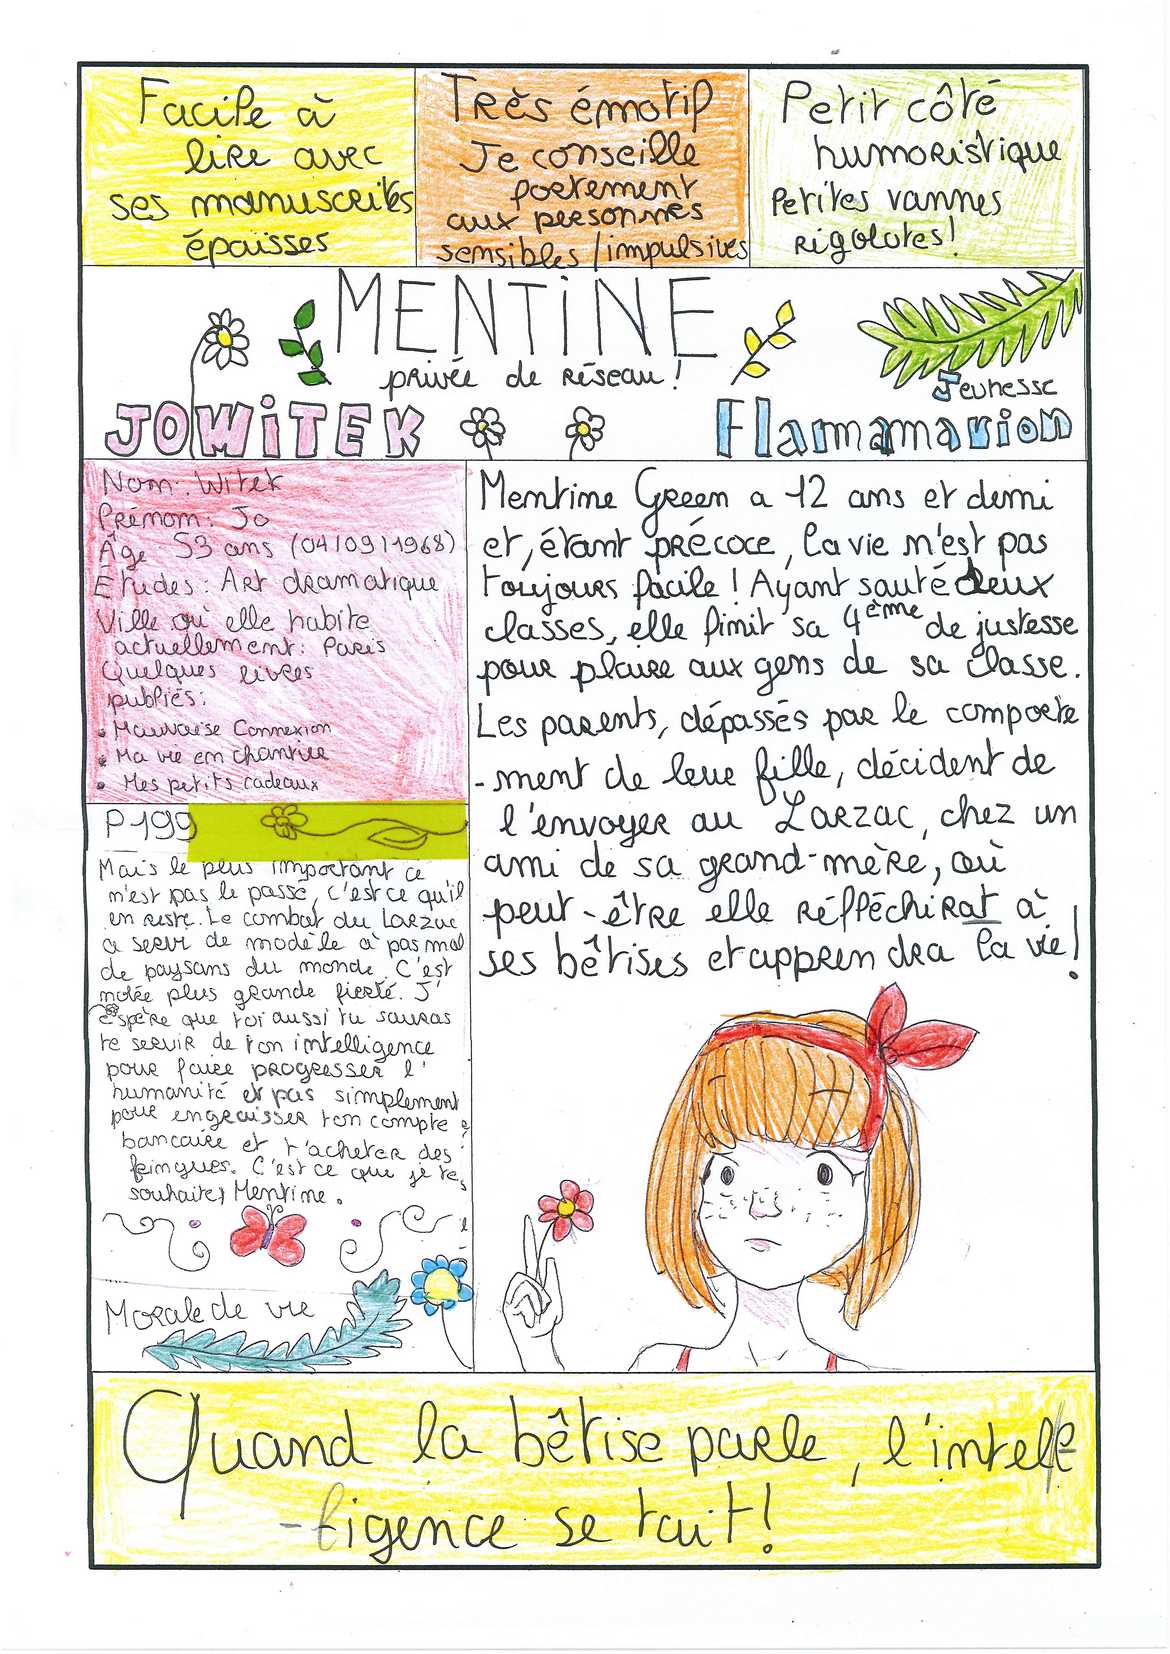 Facile à
lire avec
ses manuscrites
épaisses
Très émotif
Je conseille
fortement
aux personnes
sensibles/impulsives
Petit côté
humoristique
Petites vannes
rigolotes!
MENTiNE
privée de réseau!
JOWiTEK
Jeunesse
Flammarion
Nom: Witek
Prénom: Jo
Âge 53 ans (04/09/1968)
Etudes: Art dramatique
Ville où elle habite
actuellement: Paris
Quelques livres
publiés:
• Mauvaise Connexion
• Ma vie en chantier
• Mes petits cadeaux
P199
Mais le plus important ce
n'est pas le passé, c'est ce qu'il
en reste. Le combat du Larzac
a servi de modèle à pas mal
de paysans du monde. C'est
notre plus grande fierté. J'
espère que toi aussi tu sauras
te servir de ton intelligence
pour faire progresser l'
humanité et pas simplement
pour engraisser ton compte
bancaire et t'acheter des
feingues. C'est ce que je te
souhaite, Mentine.
Morale de vie
Mentine Green a 12 ans et demi
et, étant précoce, la vie n'est pas
toujours facile! Ayant sauté deux
classes, elle finit sa 4ème de justesse
pour plaire aux gens de sa classe.
Les parents, dépassés par le comporte
-ment de leur fille, décident de
l'envoyer au Larzac, chez un
ami de sa grand-mère, où
peut-être elle réfléchirat à
ses bêtises et apprendra la vie!
Quand la bêtise parle, l'intel
-ligence se tait!